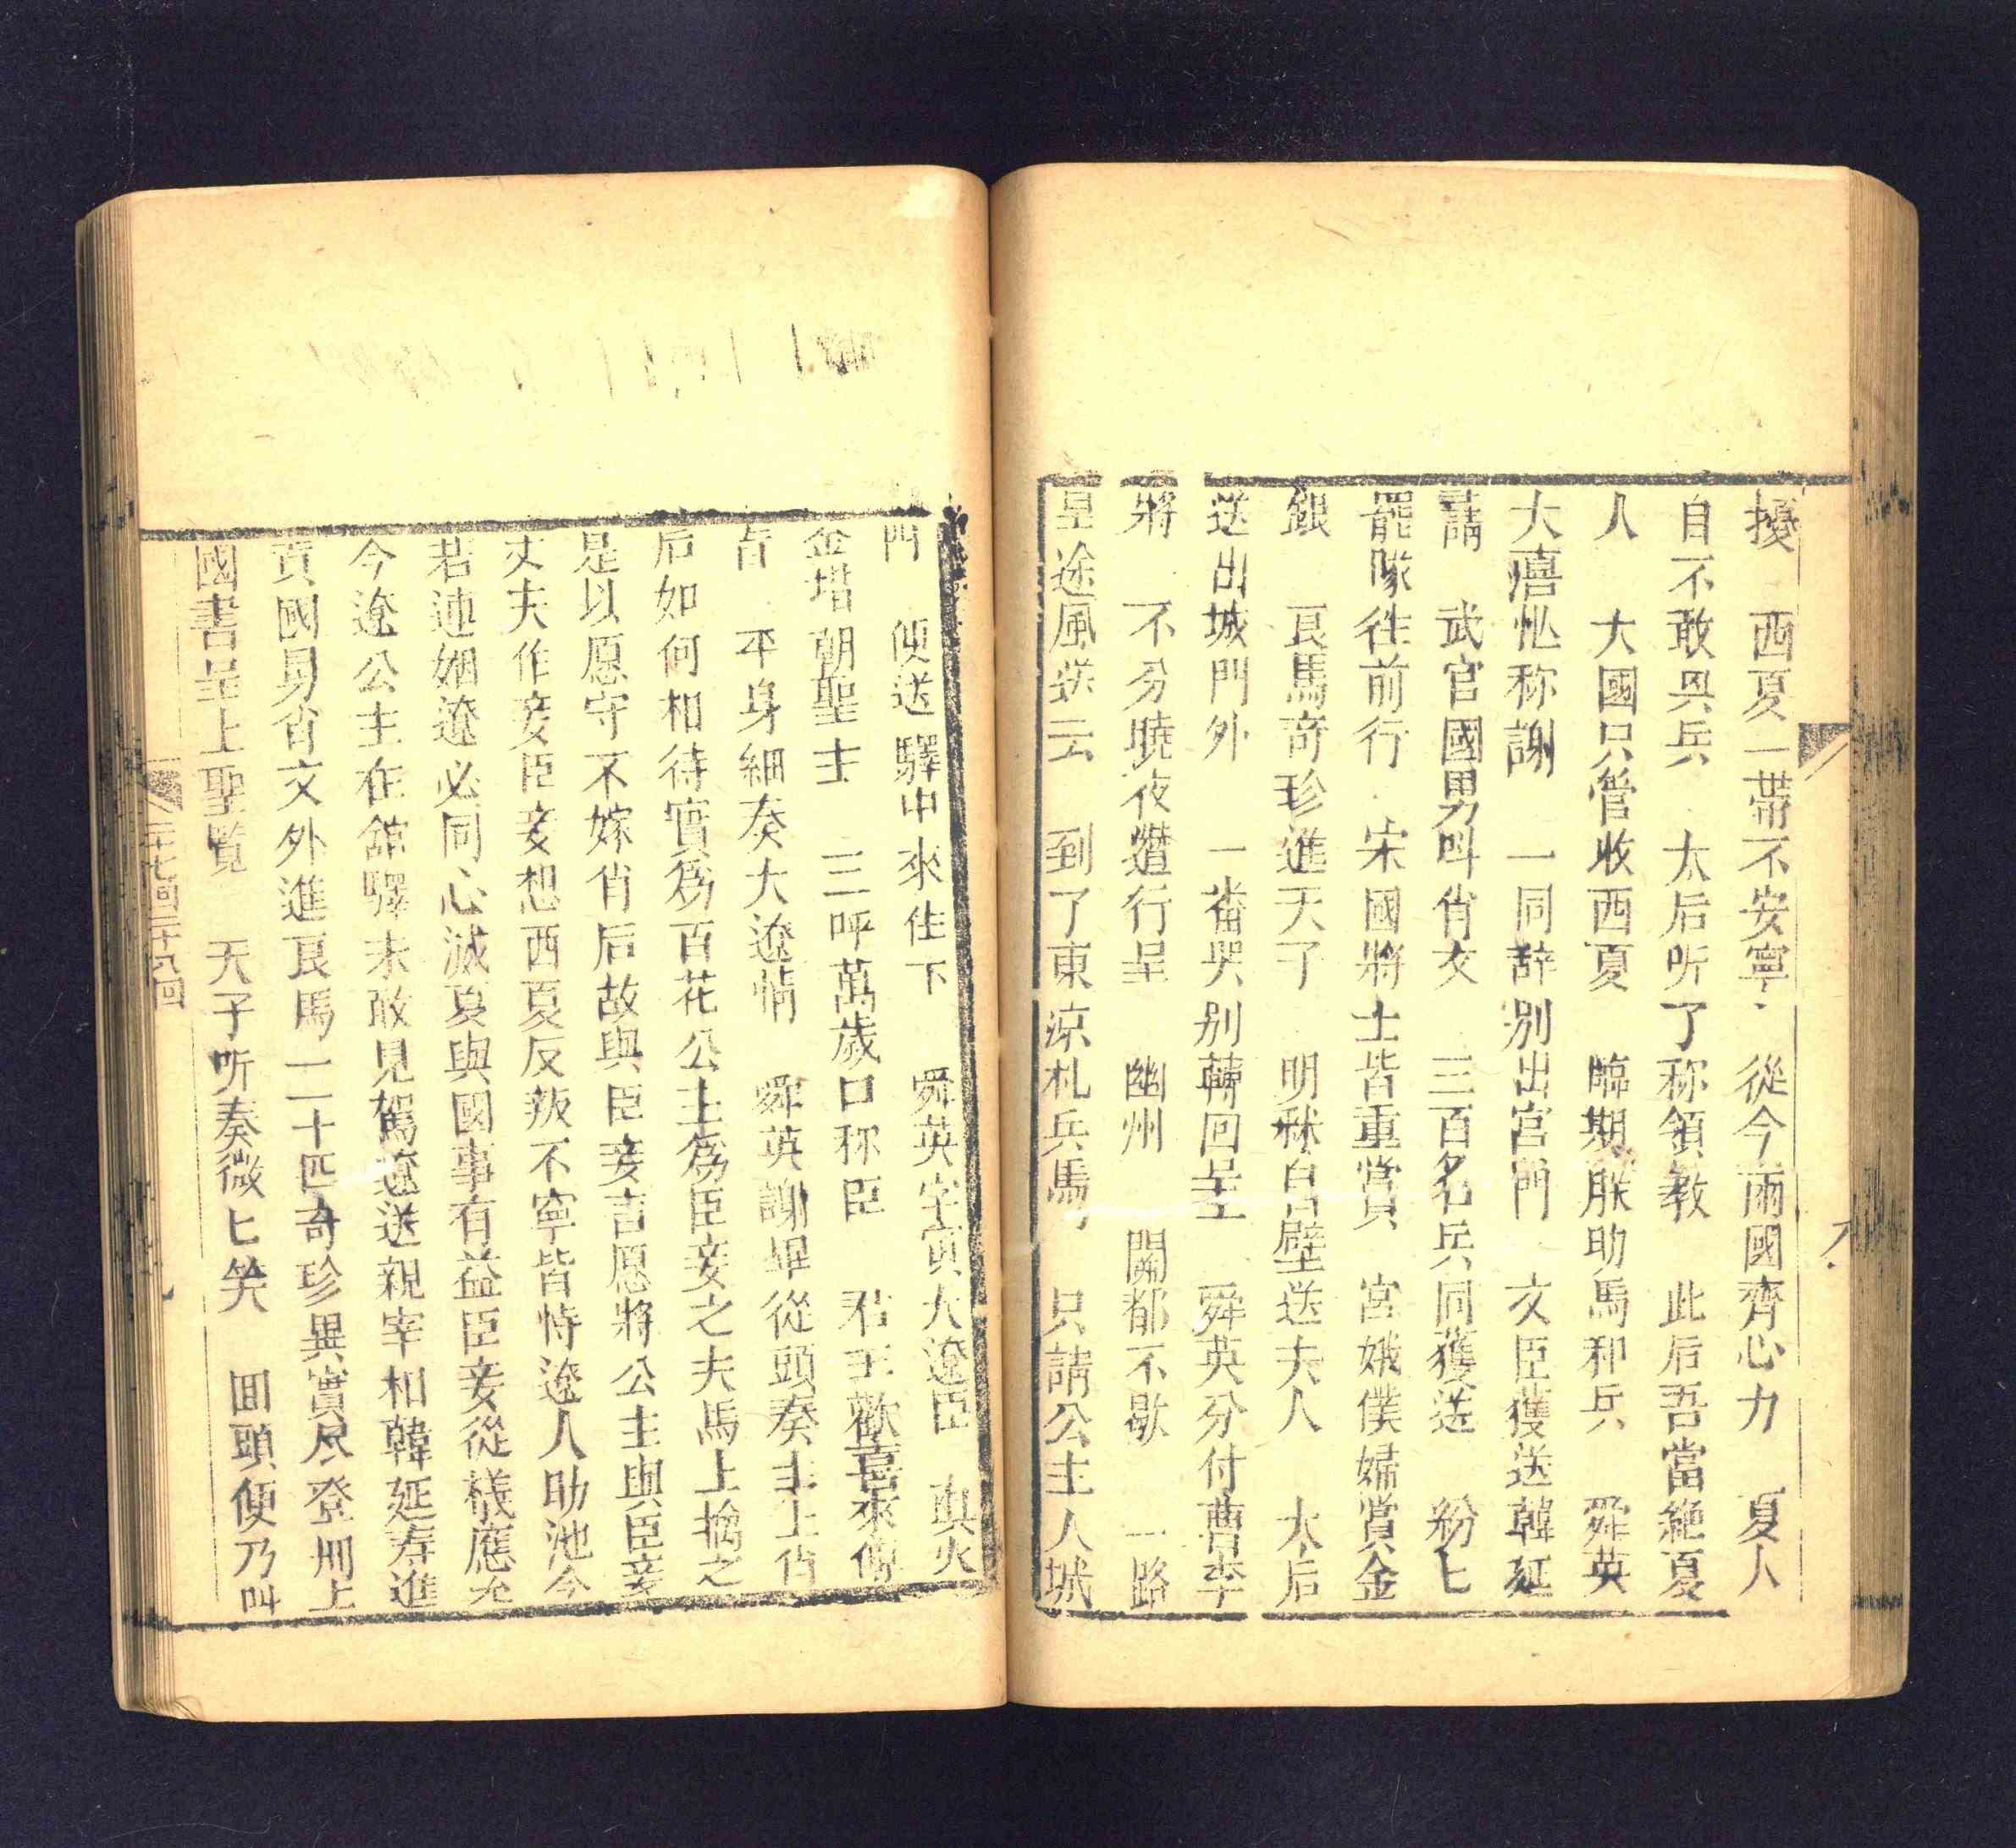 擾　西夏一帶不安寧　從今兩國齊心力　夏人
自不敢興兵　太后听了称領教　此后吾當絶夏
人　大國只管收西夏　臨期朕助馬和兵　舜英
大喜忙称謝　一同辞別出宫門　文臣獲送韓延
請　武官國男叫肖文　三百名兵同獲送　紛匕
罷隊徃前行　宋國將士皆重賞　宮娥僕婦賞金
銀　良馬奇珍進天了　明秫白壁送夫人　太后
送出城門外　一畨哭别轉回呈　舜英分付曹李
將　不分曉夜遭行呈　幽州　開都不歇　一路
呈途風送云　到了東涼札兵馬　只請公主人城
門　便送驛中來住下　舜英宇寅大遼臣　與火
金堦朝聖主　三呼萬歲口称臣　君王歡喜來傳
旨　平身細奏大遼情　舜英謝畢從頭奏主上肖
后如何相待實爲百花公主爲臣妾之夫馬上擒之
是以愿守不嫁肖后故與臣妾言愿將公主與臣妾
丈夫作妾臣妾想西夏反叛不寧皆恃遼人助池今
若連姻遼必同心滅夏與國事有益臣妾從權應允
今遼公主在舘驛未敢見駕遼送親宰相韓延寿進
貢國舅肖文外進良馬一二十匹奇珍異寶尽登冊上
國書呈上聖覧　天子听奏微匕笑　回頭便乃叫
二十七回二十八回